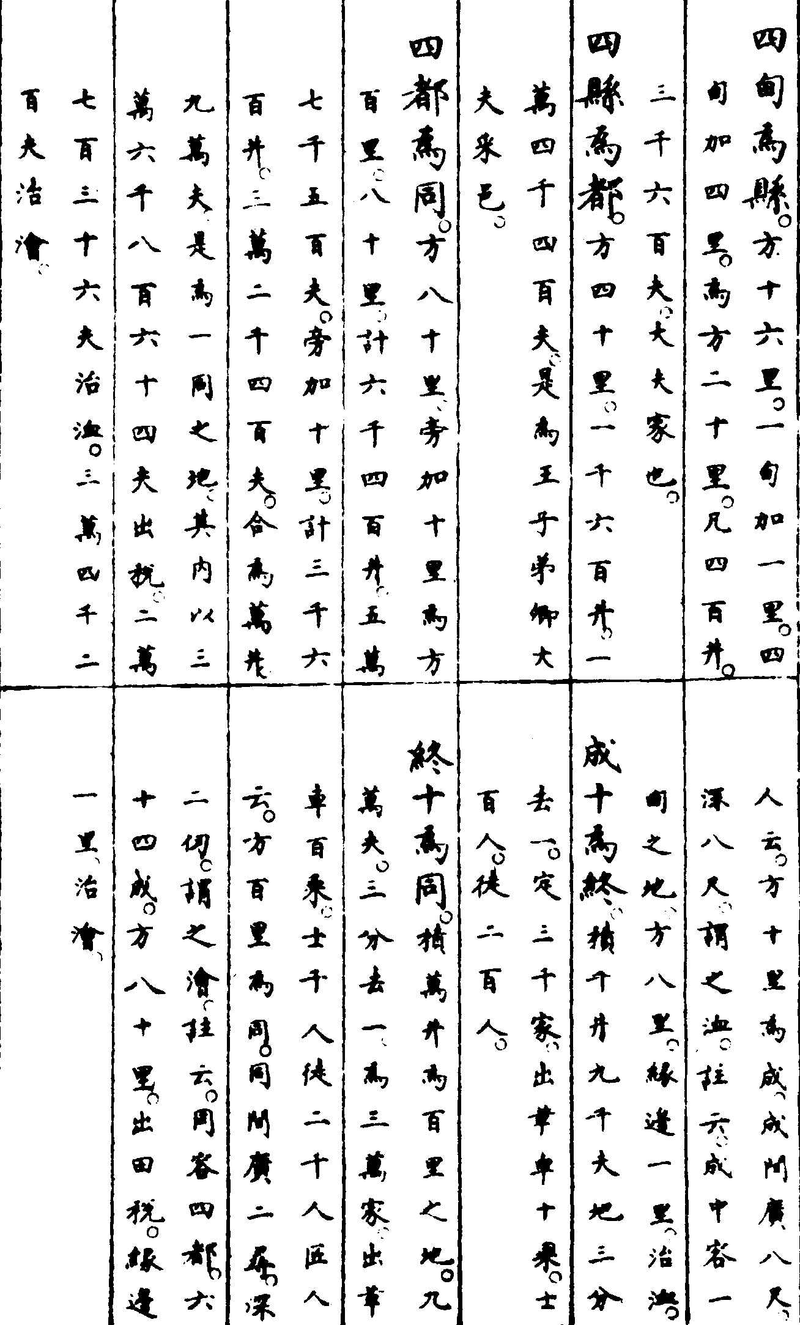 四甸爲縣。方十六里。一甸加一里。四
甸加四里。爲方二十里。凡四百井。
三千六百夫。大夫家也。
四縣爲都。方四十里。一千六百井。一
萬四千四百夫。是爲王子弟卿大
夫采邑。
四都爲同。方八十里。旁加十里爲方
百里。八十里。計六千四百井。五萬
七千五百夫。旁加十里。計三千六
百井。三萬二千四百夫。合爲萬井
九萬夫。是爲一同之地。其內以三
萬六千八百六十四夫出稅。二萬
七百三十六夫治洫。三萬四千二
百夫治澮。
人云。方十里爲成。成間廣八尺。
深八尺。謂之洫。註云。成中容一
甸之地。方八里。緣邊一里。治洫。
成十爲終。積千井九千夫地三分
去一。定三千家。出革車十乘。士
百人。徒二百人。
終十爲同。積萬井爲百里之地。九
萬夫。三分去一、爲三萬家。出革
車百乘。士千人徒二千人匠人
云。方百里爲同。同間廣二尋。深
二仞。謂之澮。註云。同容四都。六
十四成。方八十里。出田稅。緣邊
一里、治澮、